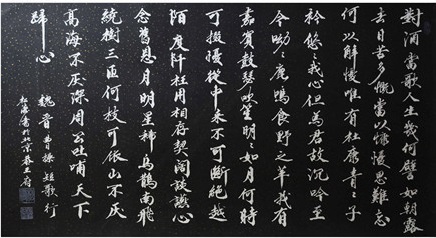 對酒當歌人生幾何譬如朝露
去日苦多慨當以慷憂思難忘
何以解憂唯有杜康青青子
衿悠悠我心但為君故沉吟至
今呦呦鹿鳴食野之苹我有
嘉賓鼓瑟吹笙明明如月何時
可掇憂從中來不可斷絕越
陌度阡枉用相存契闊談讌心
念舊恩月明星稀烏鵲南飛
繞樹三匝何枝可依山不厭
高海不厭深周公吐哺天下
歸心
魏晉曹操短歌行
書於北京恭王府